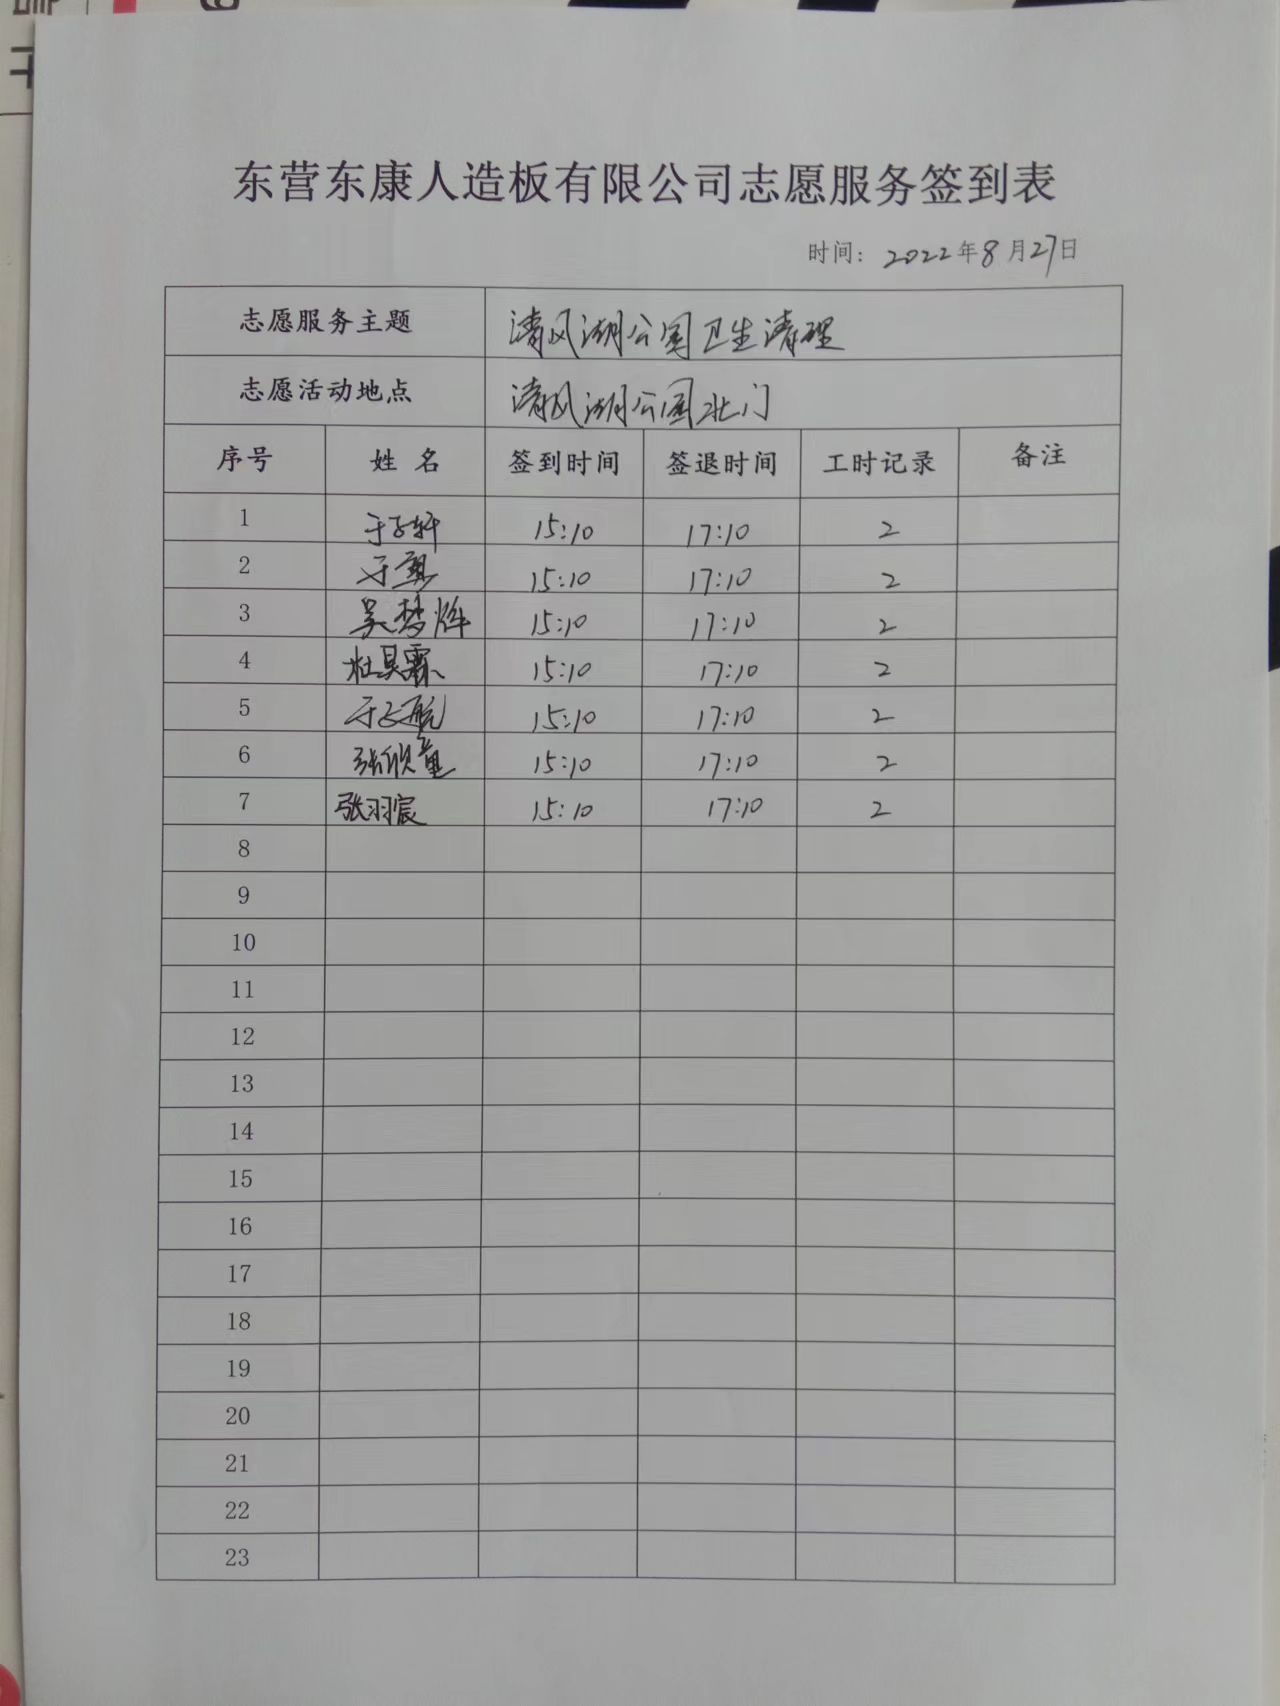 东营东康人造板有限公司志愿服务签到表
时间: 2022年8月27日
志愿服务主题 清风湖公园卫生清理
志愿活动地点 清风湖公园北门
序号 姓名 签到时间 签退时间 工时记录 备注
1 于子轩 15:10 17:10 2
2 15:10 17:10 2
3 吴梦烨 15:10 17:10 2
4 杜昊霖 15:10 17:10 2
5 于文航 15:10 17:10 2
6 张欣童 15:10 17:10 2
7 张羽宸 15:10 17:10 2
8
9
10
11
12
13
14
15
16
17
18
19
20
21
22
23